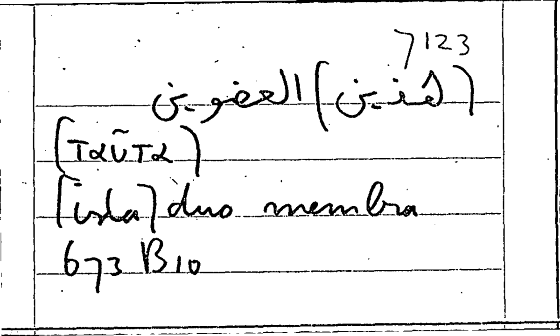 7123
(هذين) العضوين
(ταῦτα)
[ista] duo membra
673 B10